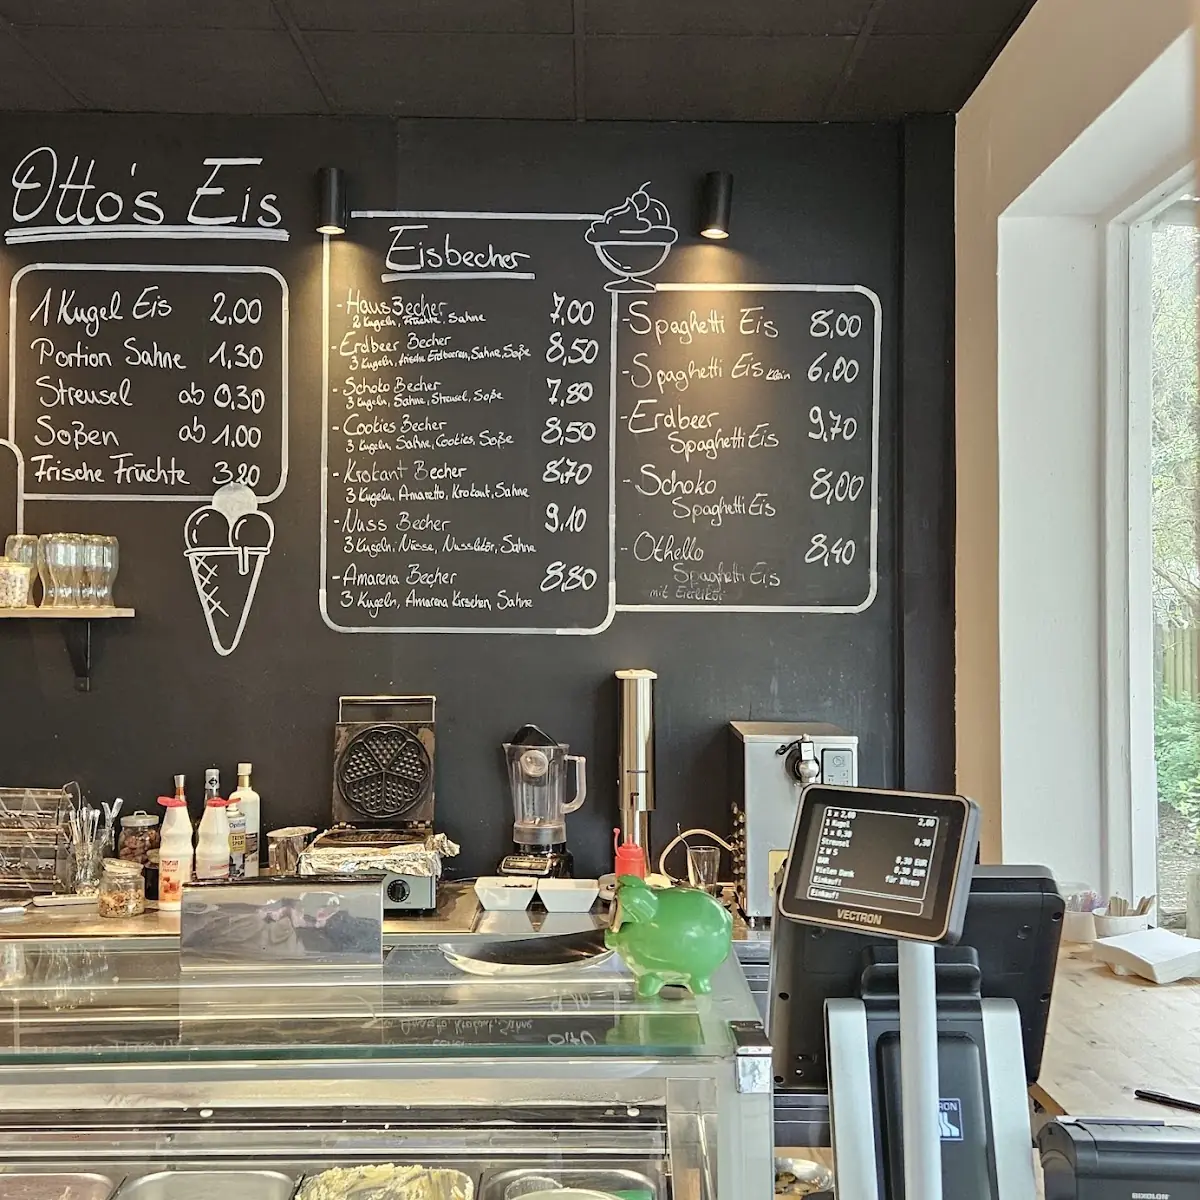 Otto's Eis
1 Kugel Eis 2,00
Portion Sahne 1,30
Streusel ab 0,30
Soßen ab 1,00
Frische Früchte 3,20
Eisbecher
- Haus Becher 7,00
2 Kugeln, Früchte, Sahne
- Erdbeer Becher 8,50
3 Kugeln, frische Erdbeeren, Sahne, Soße
- Schoko Becher 7,80
3 Kugeln, Sahne, Streusel, Soße
- Cookies Becher 8,50
3 Kugeln, Sahne, Cookies, Soße
- Krokant Becher 8,70
3 Kugeln, Amaretto, Krokant, Sahne
- Nuss Becher 9,10
3 Kugeln, Nüsse, Nusslikör, Sahne
- Amarena Becher 8,80
3 Kugeln, Amarena Kirschen, Sahne
- Spaghetti Eis 8,00
- Spaghetti Eis klein 6,00
- Erdbeer 9,70
Spaghetti Eis
- Schoko 8,00
Spaghetti Eis
- Othello 8,40
Spaghetti Eis
mit Eierlikör
1 x 2,00
1 Kugel 2,00
1 x 0,30
Streusel 0,30
Z W S
BAR 0,30 EUR
Vielen Dank 0,30 EUR
Einkauf! für Ihren
Einkauf!
VECTRON
BIXOLON